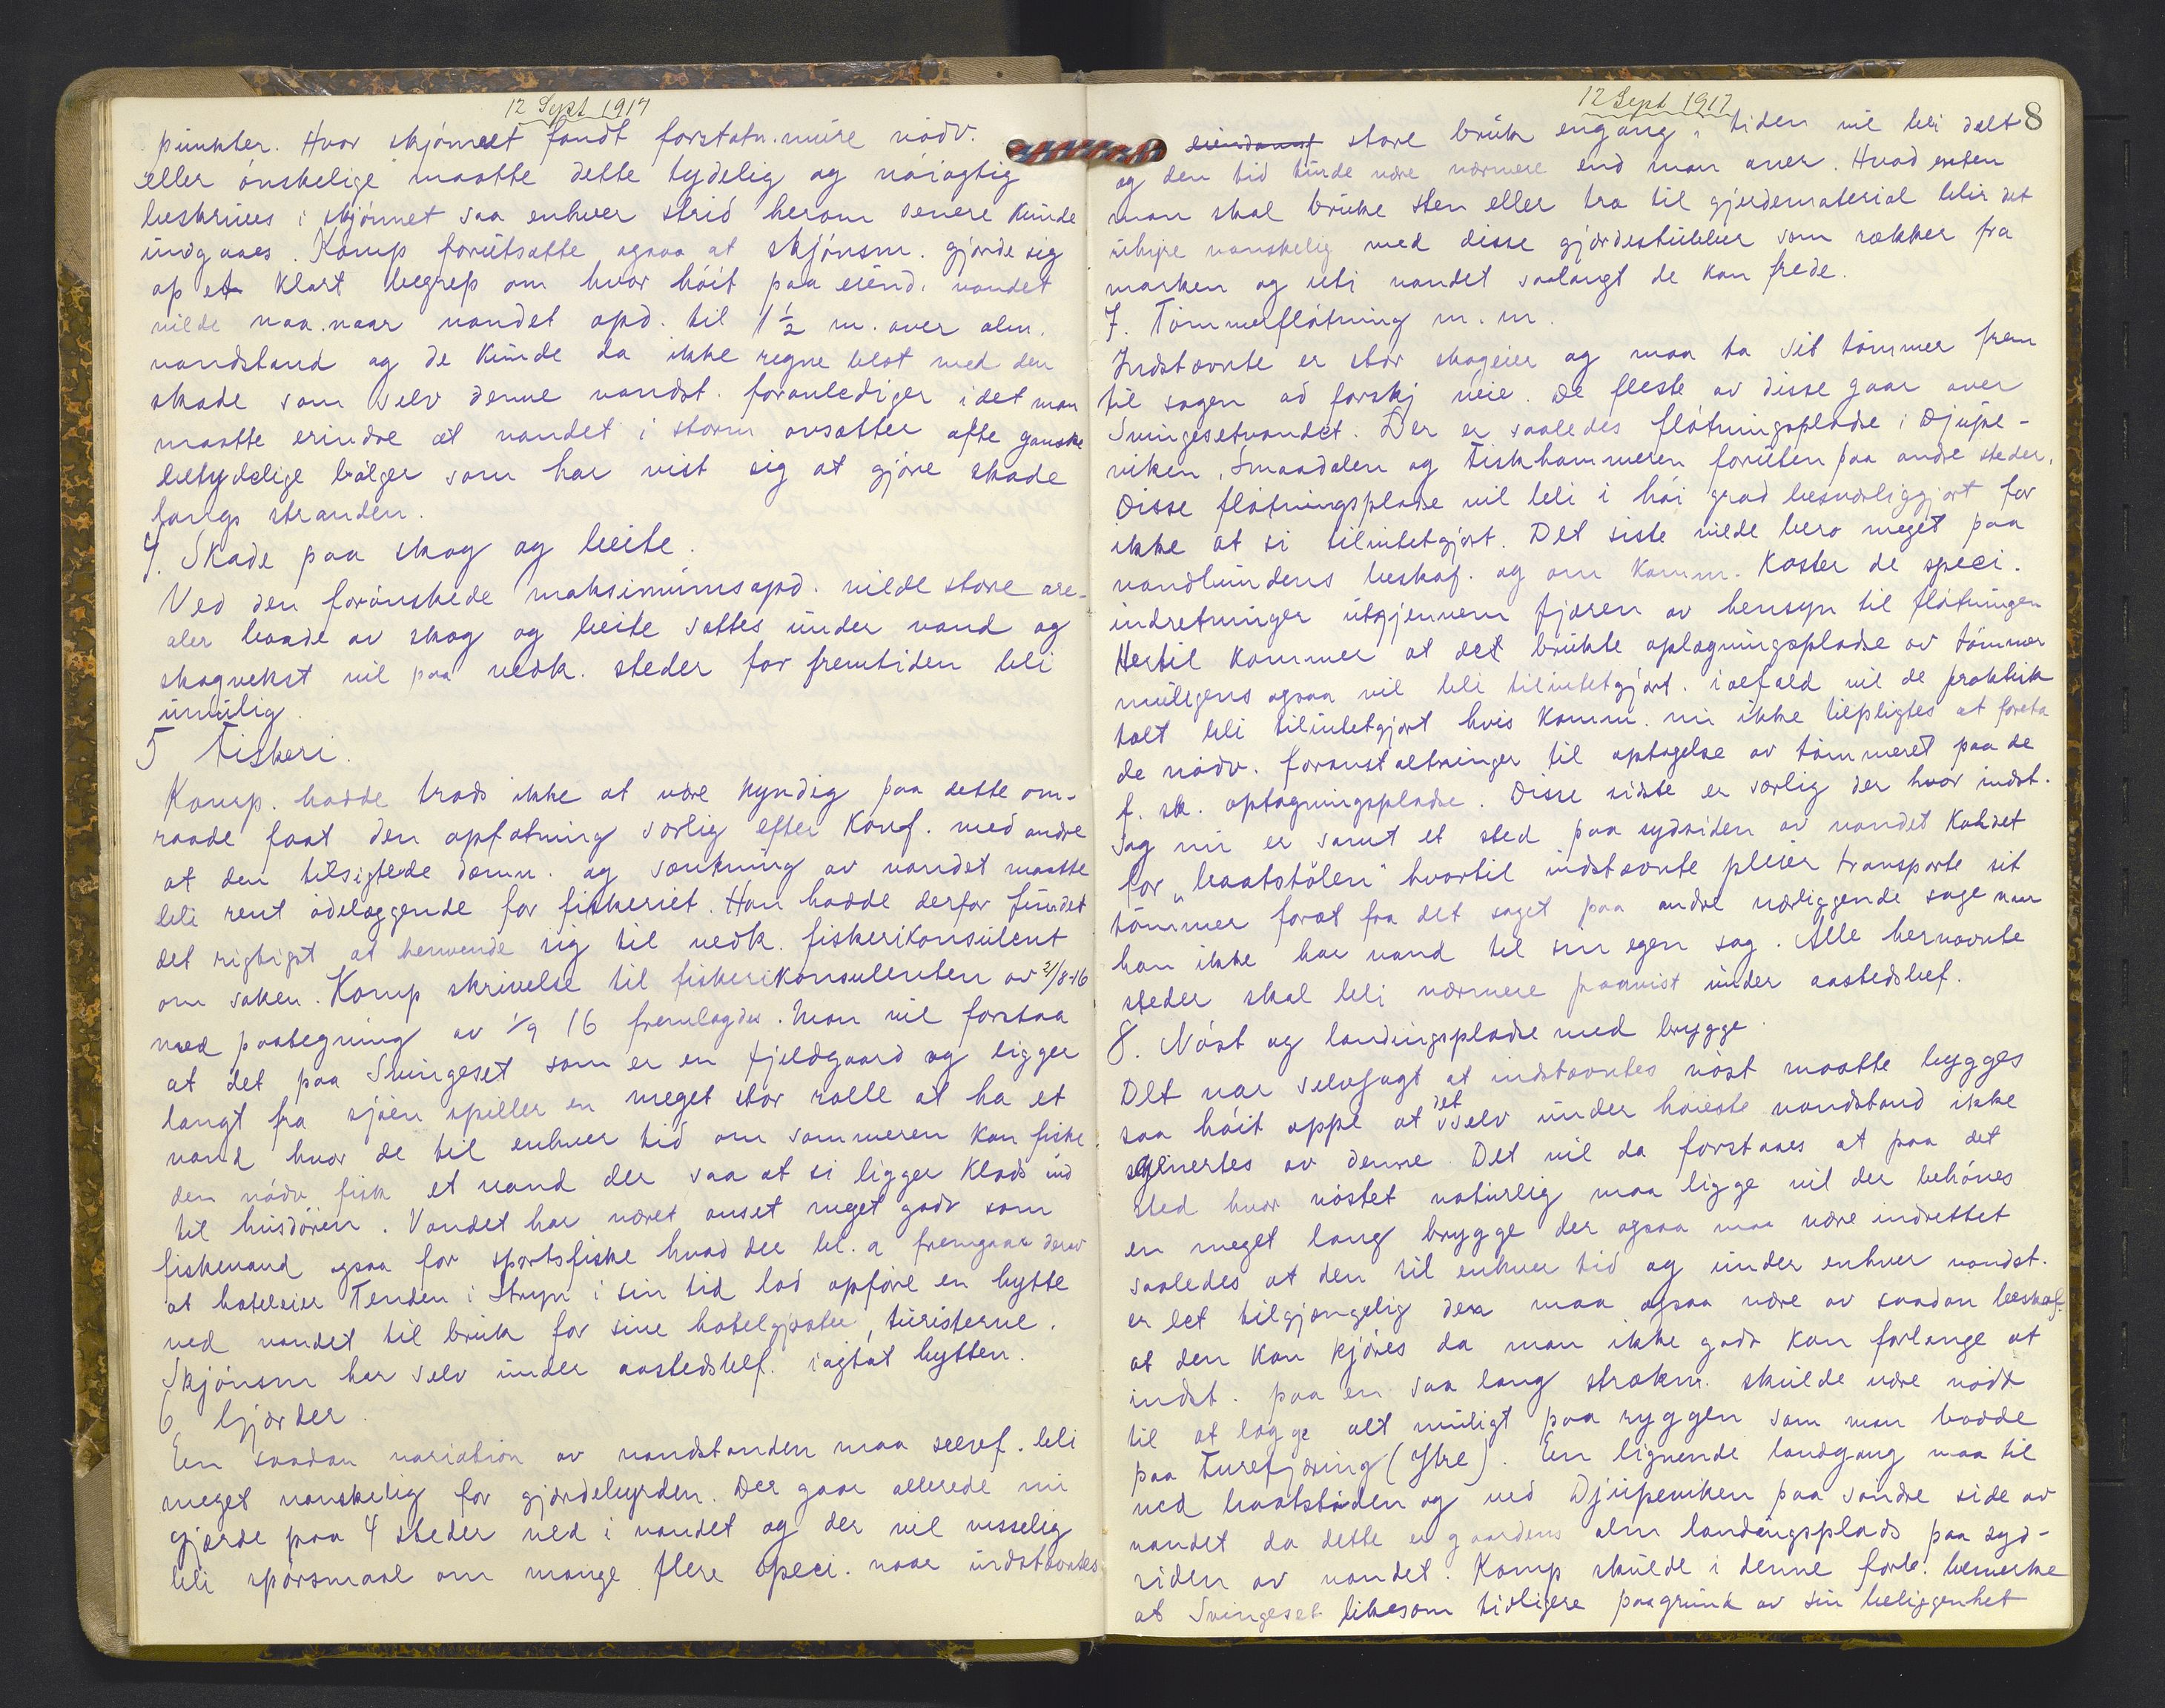 12 Sept 1917
punkter. Hvor skjønnet fandt forstøtn.mure nødv.
eller ønskelige maatte dette tydelig og nøiagtig
beskrives i skjønnet saa enhver strid herom senere kunde
undgaaes. Komp forutsatte ogsaa at skjønsm. gjorde sig
op et klart begrep om hvor høit paa eiend. vandet
vilde naa naar vandet opd. til 1½ m. over alm.
vandstand og de kunde da ikke regne blot med den
skade som selv denne vandst. foranlediger idet man
maatte erindre at vandet i storm avsætter ofte ganske
betydelige bølger som har vist sig at gjøre skade
langs stranden.
4. Skade paa skog og beite.
Ved den forønskede maksimumsopd. vilde store are-
aler baade av skog og beite sættes under vand og
skogvekst vil paa vedk. steder for fremtiden bli
umulig.
5 Fiskeri.
Komp. hadde trods ikke at være kyndig paa dette om-
raade faat den opfatning særlig efter konf. med andre
at den tilsigtede dæmn. og sænkning av vandet maatte
bli rent ødelæggende for fiskeriet. Han hadde derfor fundet
det rigtigst at henvende sig til vedk. fiskerikonsulent
om saken. Komp skrivelse til fiskerikonsulenten av 21/8-16
med paategning av 1/9 16 fremlagdes. Man vil forstaa
at det paa Svingeset som er en fjeldgaard og ligger
langt fra sjøen spiller en meget stor rolle at ha et
vand hvor de til enhver tid om sommeren kan fiske
den nødv fisk et vand der saa at si ligger klods ind
til husdøren. Vandet har været anset meget godt som
fiskevand ogsaa for sportsfiske hvad der bl. a fremgaar derav
at hoteleier Tenden i Stryn i sin tid lod opføre en hytte
ved vandet til bruk for sine hotelgjæster, turisterne.
Skjønsm har selv under aastedsbef. iagtat hytten.
6 Gjærder.
En saadan variation av vandstanden maa selvf. bli
meget vanskelig for gjærdebyrden. Der gaar allerede nu
gjærde paa 4 steder ned i vandet og der vil visselig
bli spørsmaal om mange flere speci. naar indstævntes
12 Sept 1917
8
eiendoms store bruk engang i tiden vil bli delt
og den tid turde være nærmere end man aner. Hvad enten
man skal bruke sten eller træ til gjerdematerial blir det
uhyre vanskelig med disse gjærdestubber som rækker fra
marken og uti vandet saalangt de kan frede.
7. Tømmerfløtning m. m.
Indstævnte er stor skogeier og maa ta sit tømmer frem
til sagen ad forskj veie. De fleste av disse gaar over
Svingesetvandet. Der er saaledes fløtningspladse i Djupe-
viken, Smaadalen og Fiskhammeren foruten paa andre steder.
Disse fløtningspladse vil bli i høi grad besværliggjort for
ikke at si tilintetgjort. Det siste vilde bero meget paa
vandbundens beskaf. og om komm. koster de speci.
indretninger utgjennem fjæren av hensyn til fløtningen
Hertil kommer at det brukte oplagningspladse av tømmer
muligens ogsaa vil bli tilintetgjort. ialfald vil de praktisk
talt bli tilintetgjort hvis komm. nu ikke tilpligtes at foreta
de nødv. foranstaltninger til optagelse av tømmeret paa de
f. sk. optagningspladse. Disse sidste er særlig der hvor indst.
sag nu er samt et sted paa sydsiden av vandet kaldet
for "baatstølen" hvortil indstævnte pleier transporte sit
tømmer forat fra det saget paa andre nærliggende sage naar
han ikke har vand til sin egen sag. Alle hernævnte
steder skal bli nærmere paavist under aastedsbef.
8. Nøst og landingspladse med brygge.
Det var selvsagt at indstævntes nøst maatte bygges
saa høit oppe at det selv under høieste vandstand ikke
genertes av denne. Det vil da forstaaes at paa det
sted hvor nøstet naturlig maa ligge vil der behøves
en meget lang brygge der ogsaa maa være indrettet
saaledes at den til enhver tid og under enhver vandst.
er let tilgjængelig den maa ogsaa være av saadan beskaf.
at den kan kjøres da man ikke godt kan forlange at
indst. paa en saa lang strækn. skulde være nødt
til at lægge alt muligt paa ryggen som man hadde
paa Turefjæring (Ytre). En lignende landgang maa til
ved baatstøden og ved Djupeviken paa søndre side av
vandet da dette er gaardens alm landingsplads paa syd-
siden av vandet. Komp skulde i denne forb. bemerke
at Svingeset likesom tidligere paagrund av sin beliggenhet